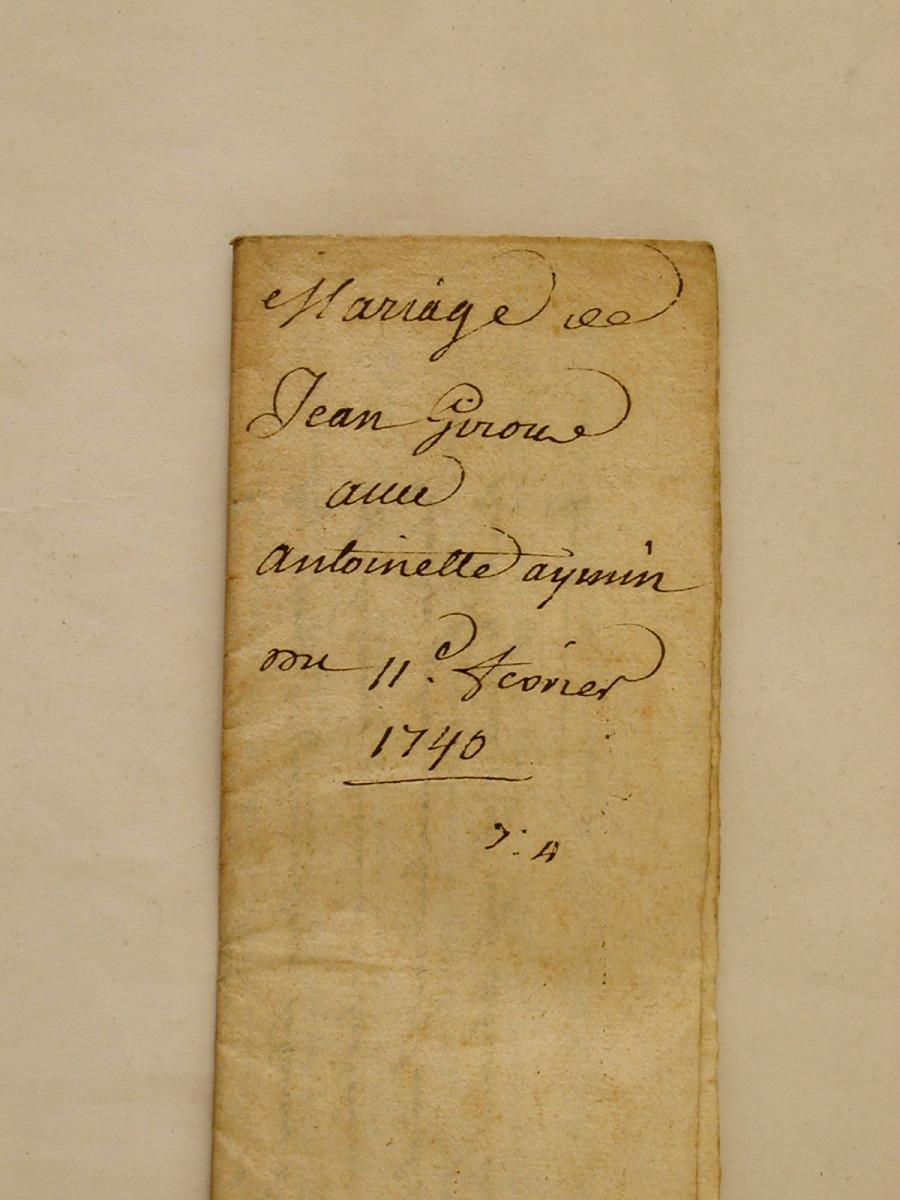 Mariage de
Jean Giroud
avec
antoinette aymin
du 11e. fevrier
1740